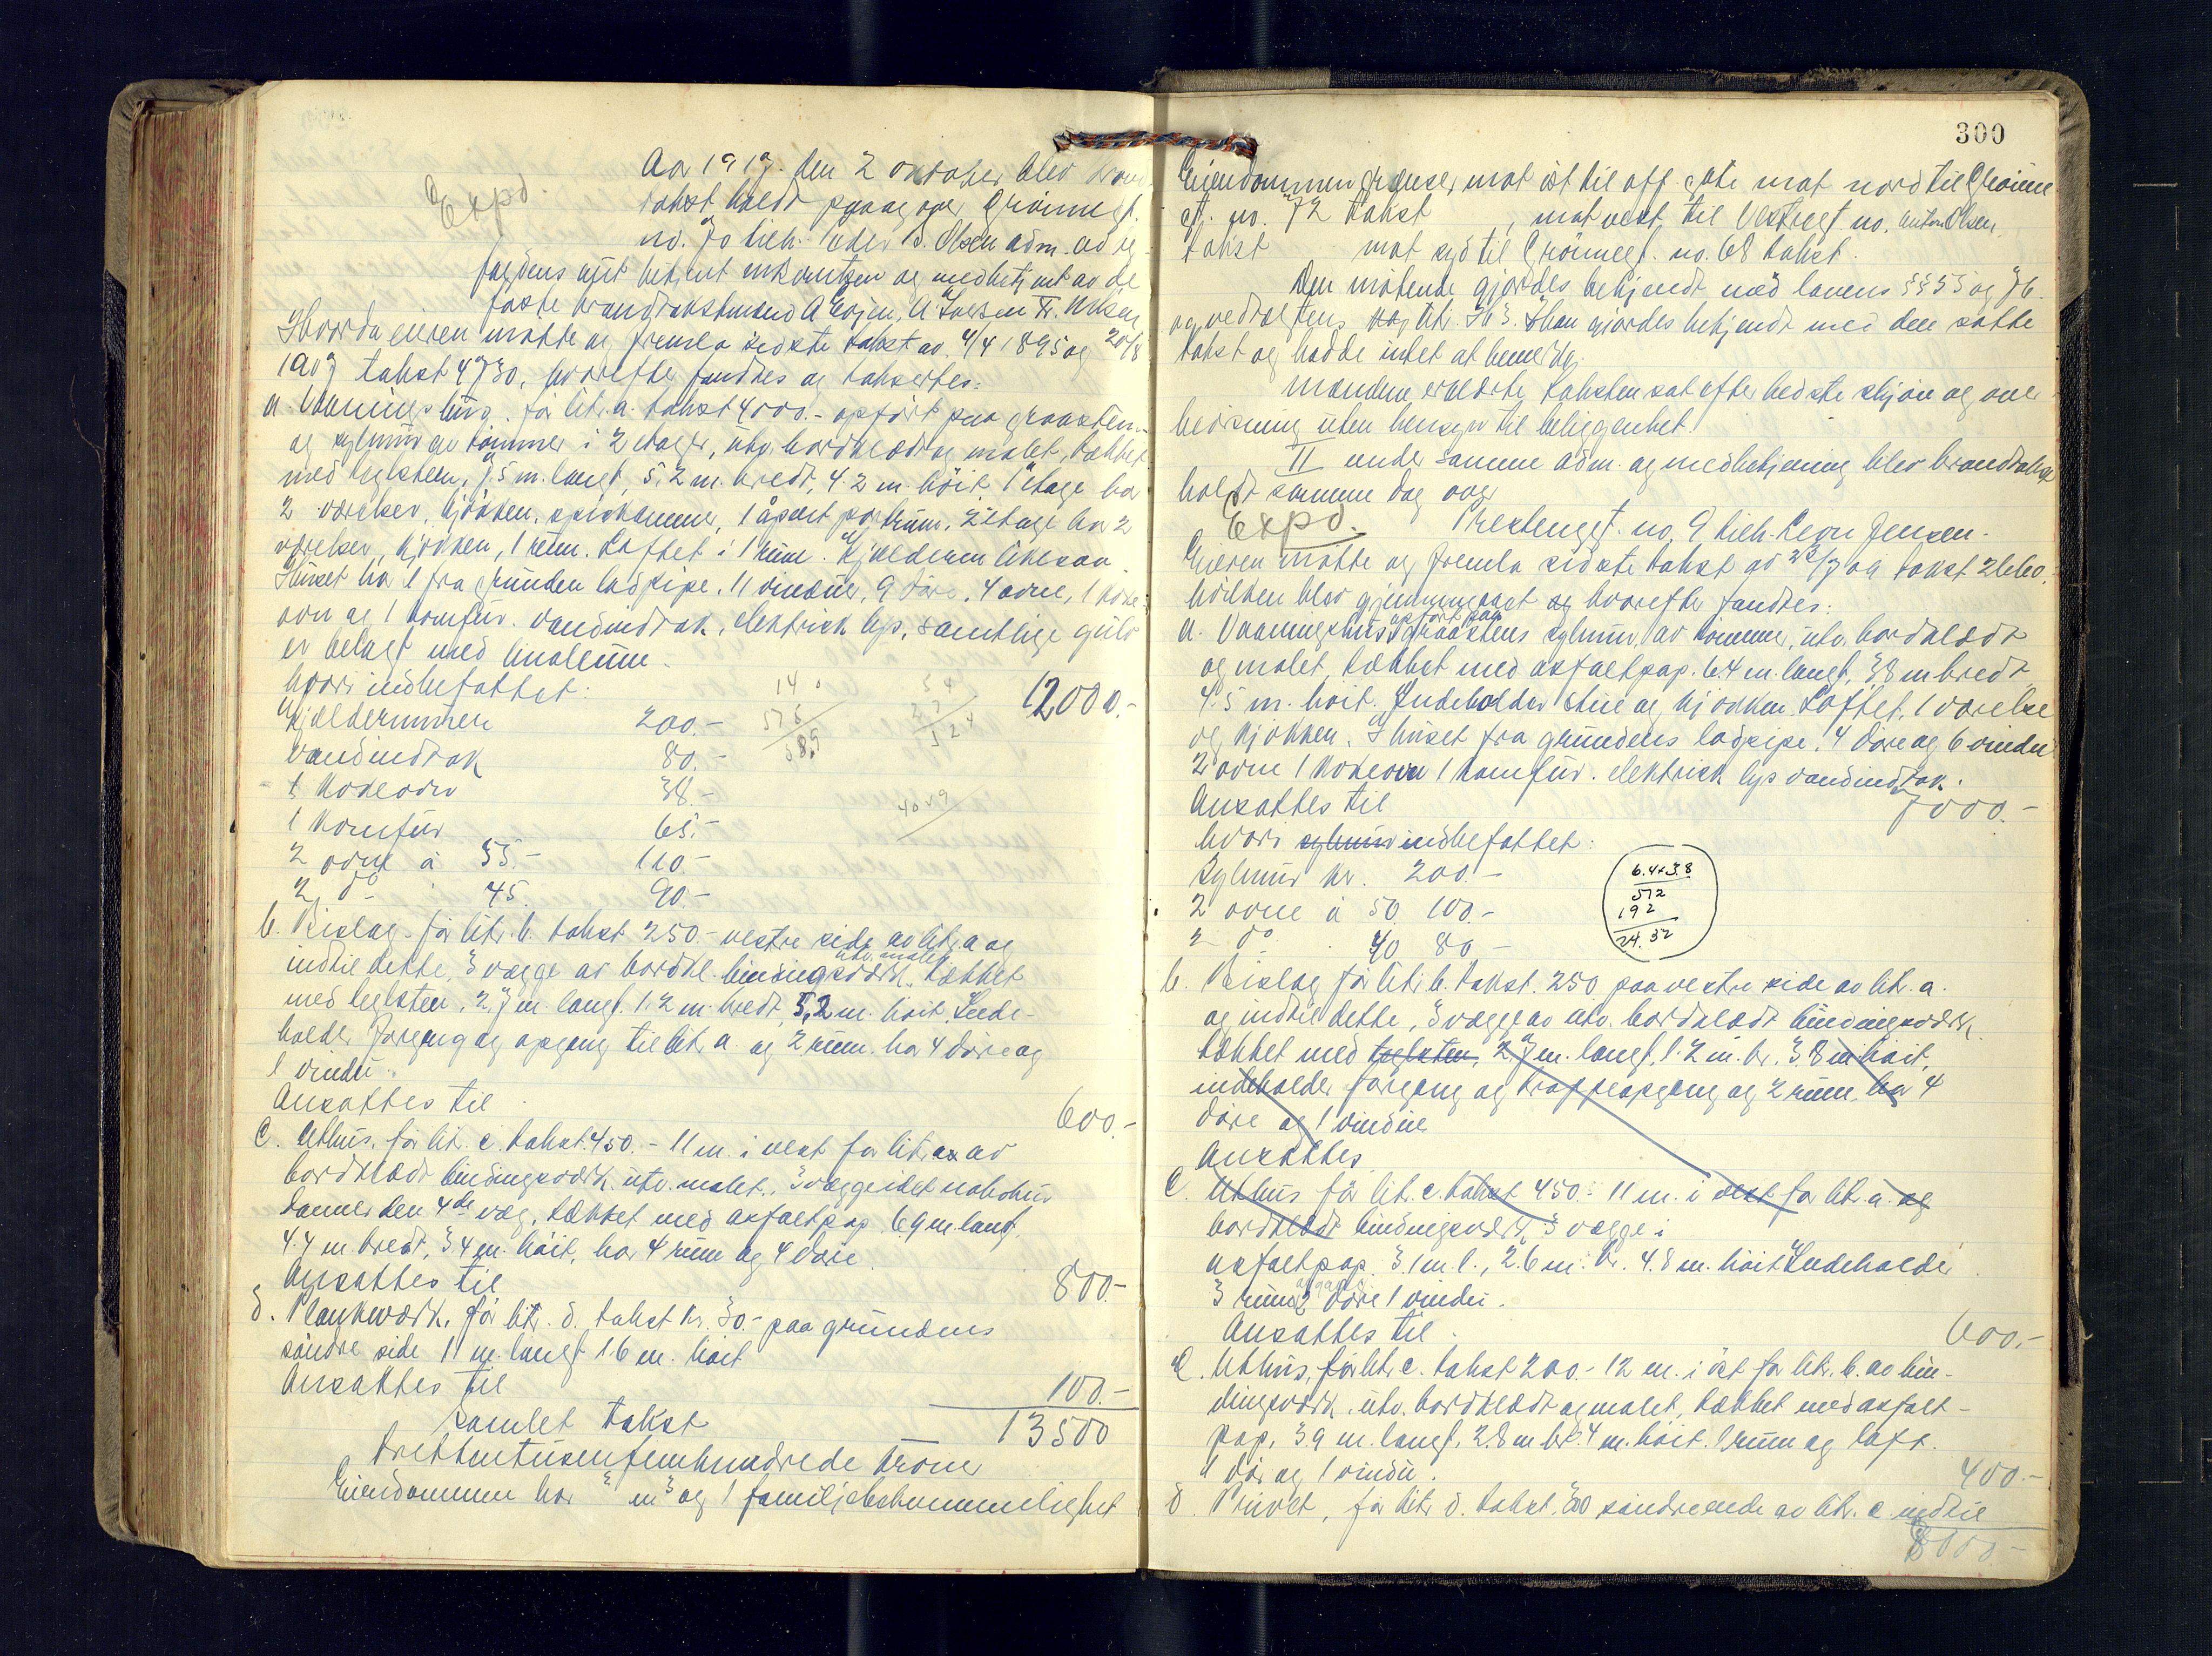 Expd.
Aar 1919. den 2 oktober blev brand-
takst holdt paa og over Grönnegt.
no. 70 tilh. Peder B. Olsen adm. av og
medbetjent av de
faste brandtakstmænd
Hvorda eieren mötte og fremla sidste takst av 4/4 1895 og 20/8
1907 takst 4730, hvorefter fandtes og taksertes:
a. Vaaningshus. för litr. a. takst 4000.- opfört paa graasten
og sylmur av tömmer i 2 etager, utv. bordklædt og malet, tækket
med teglsten, 7.5 m. langt, 5,2 m. bredt, 4.2 m. höit 1 etage har
2 værelser, kjökken, spiskammer, 1 åpent portrum, 2 etage har 2
værelser, kjökken, 1 rum. Loftet i 1 rum. Kjælderen likesaa.
Huset har 1 fra grunden ladpipe, 11 vinduer, 9 döre, 4 ovne, 1 koke-
ovn og 1 komfur. vandindtak, elektrisk lys, samtlige gulv
er belagt med linoleum.
12000.-
hvori indbefattet:
Kjælderummen 200.-
vandindtak 80.-
1 Kokeovn 38.-
1 Komfur 65.-
2 ovne à 55- 110.-
2 do 45. 90.-
b. Bislag. för litr. b. takst 250.- vestre side av litr. a og
indtil dette, 3 vægge av bordkl. bindingsværk, utv. malet tækket
med teglsten, 2.7 m. langt. 1.2 m. bredt, 5,2 m. höit. Inde-
holder forgang og opgang til litr. a. og 2 rum. har 4 döre og
1 vindu.
Ansattes til 600.-
C. Uthus, för litr. c. takst 450.- 11 m. i vest for litr. a av
bordklædt bindingsværk utv. malet, 3 vægge idet nabohus
danner den 4de væg, tækket med asfaltpap 6.9 m. langt,
4.4 m. bredt, 3.4 m. höit, har 4 rum og 4 döre.
Ansattes til 800.-
d. Plankværk, för litr. d. takst kr. 30.- paa grundens
söndre side 11 m. langt 1.6 m. höit
Ansattes til 100.-
Samlet takst 13500
trettentusenfemhundrede kroner
Eiendommen har m3 og 1 familjebekvemmelighet
300
Eiendommen grenser mot öst til off. gate mot nord til Grönne
gt. no. 72 takst , mot vest til Vestregt no. Anton Olsen,
takst mot syd til Grönnegt. no. 68 takst.
Den mötende gjordes bekjendt med lovens §§ 55 og 76
og vedtægtens kap. litr. Han gjordes bekjendt med den satte
takst og hadde intet at bemerke.
Mændene erklærte taksten sat efter bedste skjön og over-
bevisning uten hensyn til beliggenhet.
II under samme adm. og medbetjening blev brandtakst
holdt samme dag over
Expd. Prestenggt. no. 9 tilh. Peon Jensen.
Eieren mötte og fremla sidste takst av 23/7 09 takst 2660.
hvilken blev gjennemgaat og hvorefter fandtes:
a. Vaaningshus opfört paa graastens sylmur av tömmer, utv. bordklædt
og malet, tækket med asfaltpap. 6.4 m. langt, 3.8 m bredt,
4.5 m. höit. Indeholder stue og kjökken. Loftet, 1 værelse
og kjökken. I huset fra grundens ladpipe, 4 döre og 6 vinduer
2 ovne 1 kokeovn 1 komfur. elektrisk lys vandindtak.
Ansattes til 7000.-
hvori sylmur indbefattet:
Sylmur kr. 200.-
2 ovne à 50 100.-
2 do 40 80.-
6.4×3.8
512
192
24.32
b. Bislag för litr. b. takst. 250 paa vestre side av litr. a.
og indtil dette, 3 vægge av utv. bordklædt bindingsværk
tækket med teglsten, 2.7 m. langt, 1.2 m. br. 3.8 m. höit,
indeholder forgang og trappeopgang og 2 rum. har 4
döre og 1 vindue
Ansattes
C. Uthus för litr. c. takst 450.- 11 m. i vest for litr. a. og
bordklædt bindingsværk, 3 vægge i
asfaltpap. 3.1 m. l., 2.6 m. br. 4.8 m. höit Indeholder
3 rum 2 döre 1 vindu.
Ansattes til 600.-
C. Uthus, för litr. c. takst 200.- 12 m. i öst for litr. b. av bin-
dingsværk. utv. bordklædt og malet, tækket med asfalt-
pap, 3.9 m. langt, 2.8 m br. 4 m. höit. 1 rum og loft.
1 dör og 1 vindu. 400.-
d. Privet, för litr. d. takst. söndre ende av litr. c. indtil
8000.-